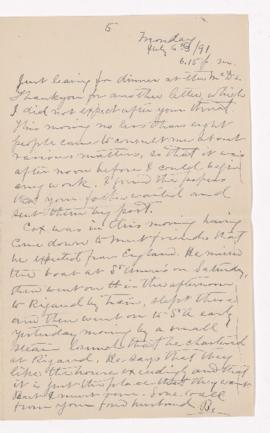 5
Monday
July 6th/91
6.15 p.m.
Just leaving for dinner at the McD's
Thank you for another letter which
I did not expect after your threat.
This morning no less than eight
people came to consult me about
various matters, so that it was
after noon before I could begin
any work. I the papers
that your father wanted and
sent them by post.
Cox was in this morning having
come down to meet friends that
he expected from England. He missed
the boat at St Anne's on Saturday,
then went on there in the afternoon
to Rigaud by train, slept there
and then went on to St A early
yesterday morning by a small
steam launch that he chartered
at Rigaud. He says that they
like the house exceedingly and that
it is just the place that they want
But I must run. Love to all
from your fond husband